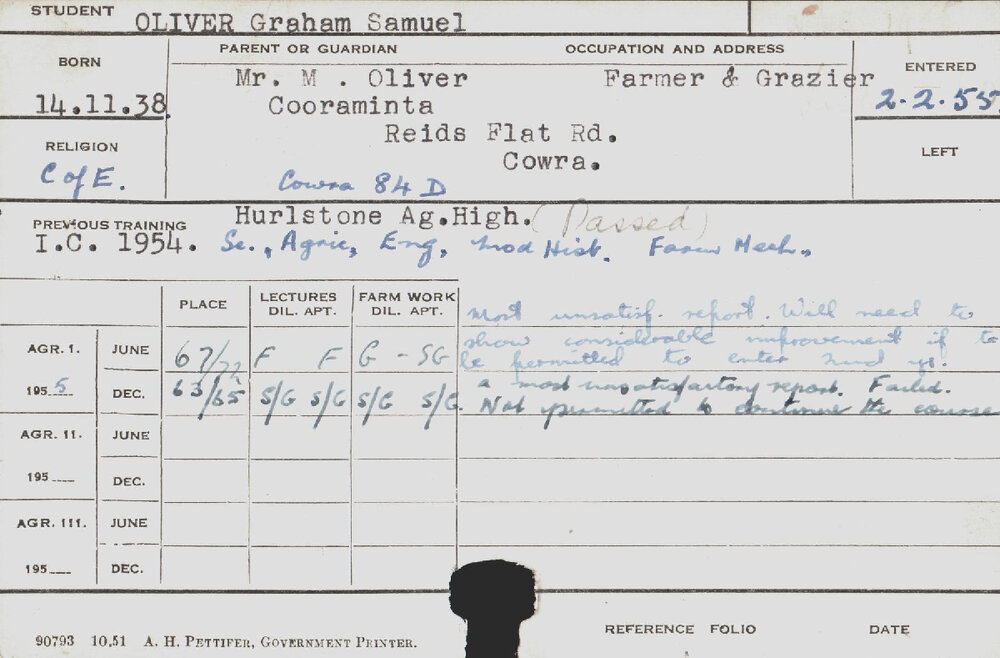 STUDENT OLIVER Graham Samuel
BORN PARENT OR GUARDIAN OCCUPATION AND ADDRESS ENTERED
14.11.38 Mr. M . Oliver Farmer & Grazier 2-2-55
Cooraminta
Reids Flat Rd.
Cowra.
RELIGION LEFT
C of E. Cowra 84 D
PREVIOUS TRAINING Hurlstone Ag.High. (Passed)
I.C. 1954. Sc., Agric, Eng, Mod Hist. Farm Mech.
PLACE LECTURES DIL. APT. FARM WORK DIL. APT.
Most unsatisf. report. Will need to
show considerable improvement if to
AGR. I. JUNE 67/72 F F G - SG be permitted to enter 2nd yr.
1955 DEC. 63/65 S/G S/G S/G S/G. a most unsatisfactory report. Failed.
Not permitted to continue the course
AGR. II. JUNE
195 DEC.
AGR. III. JUNE
195 DEC.
90793 10.51 A. H. PETTIFER, GOVERNMENT PRINTER.
REFERENCE FOLIO DATE